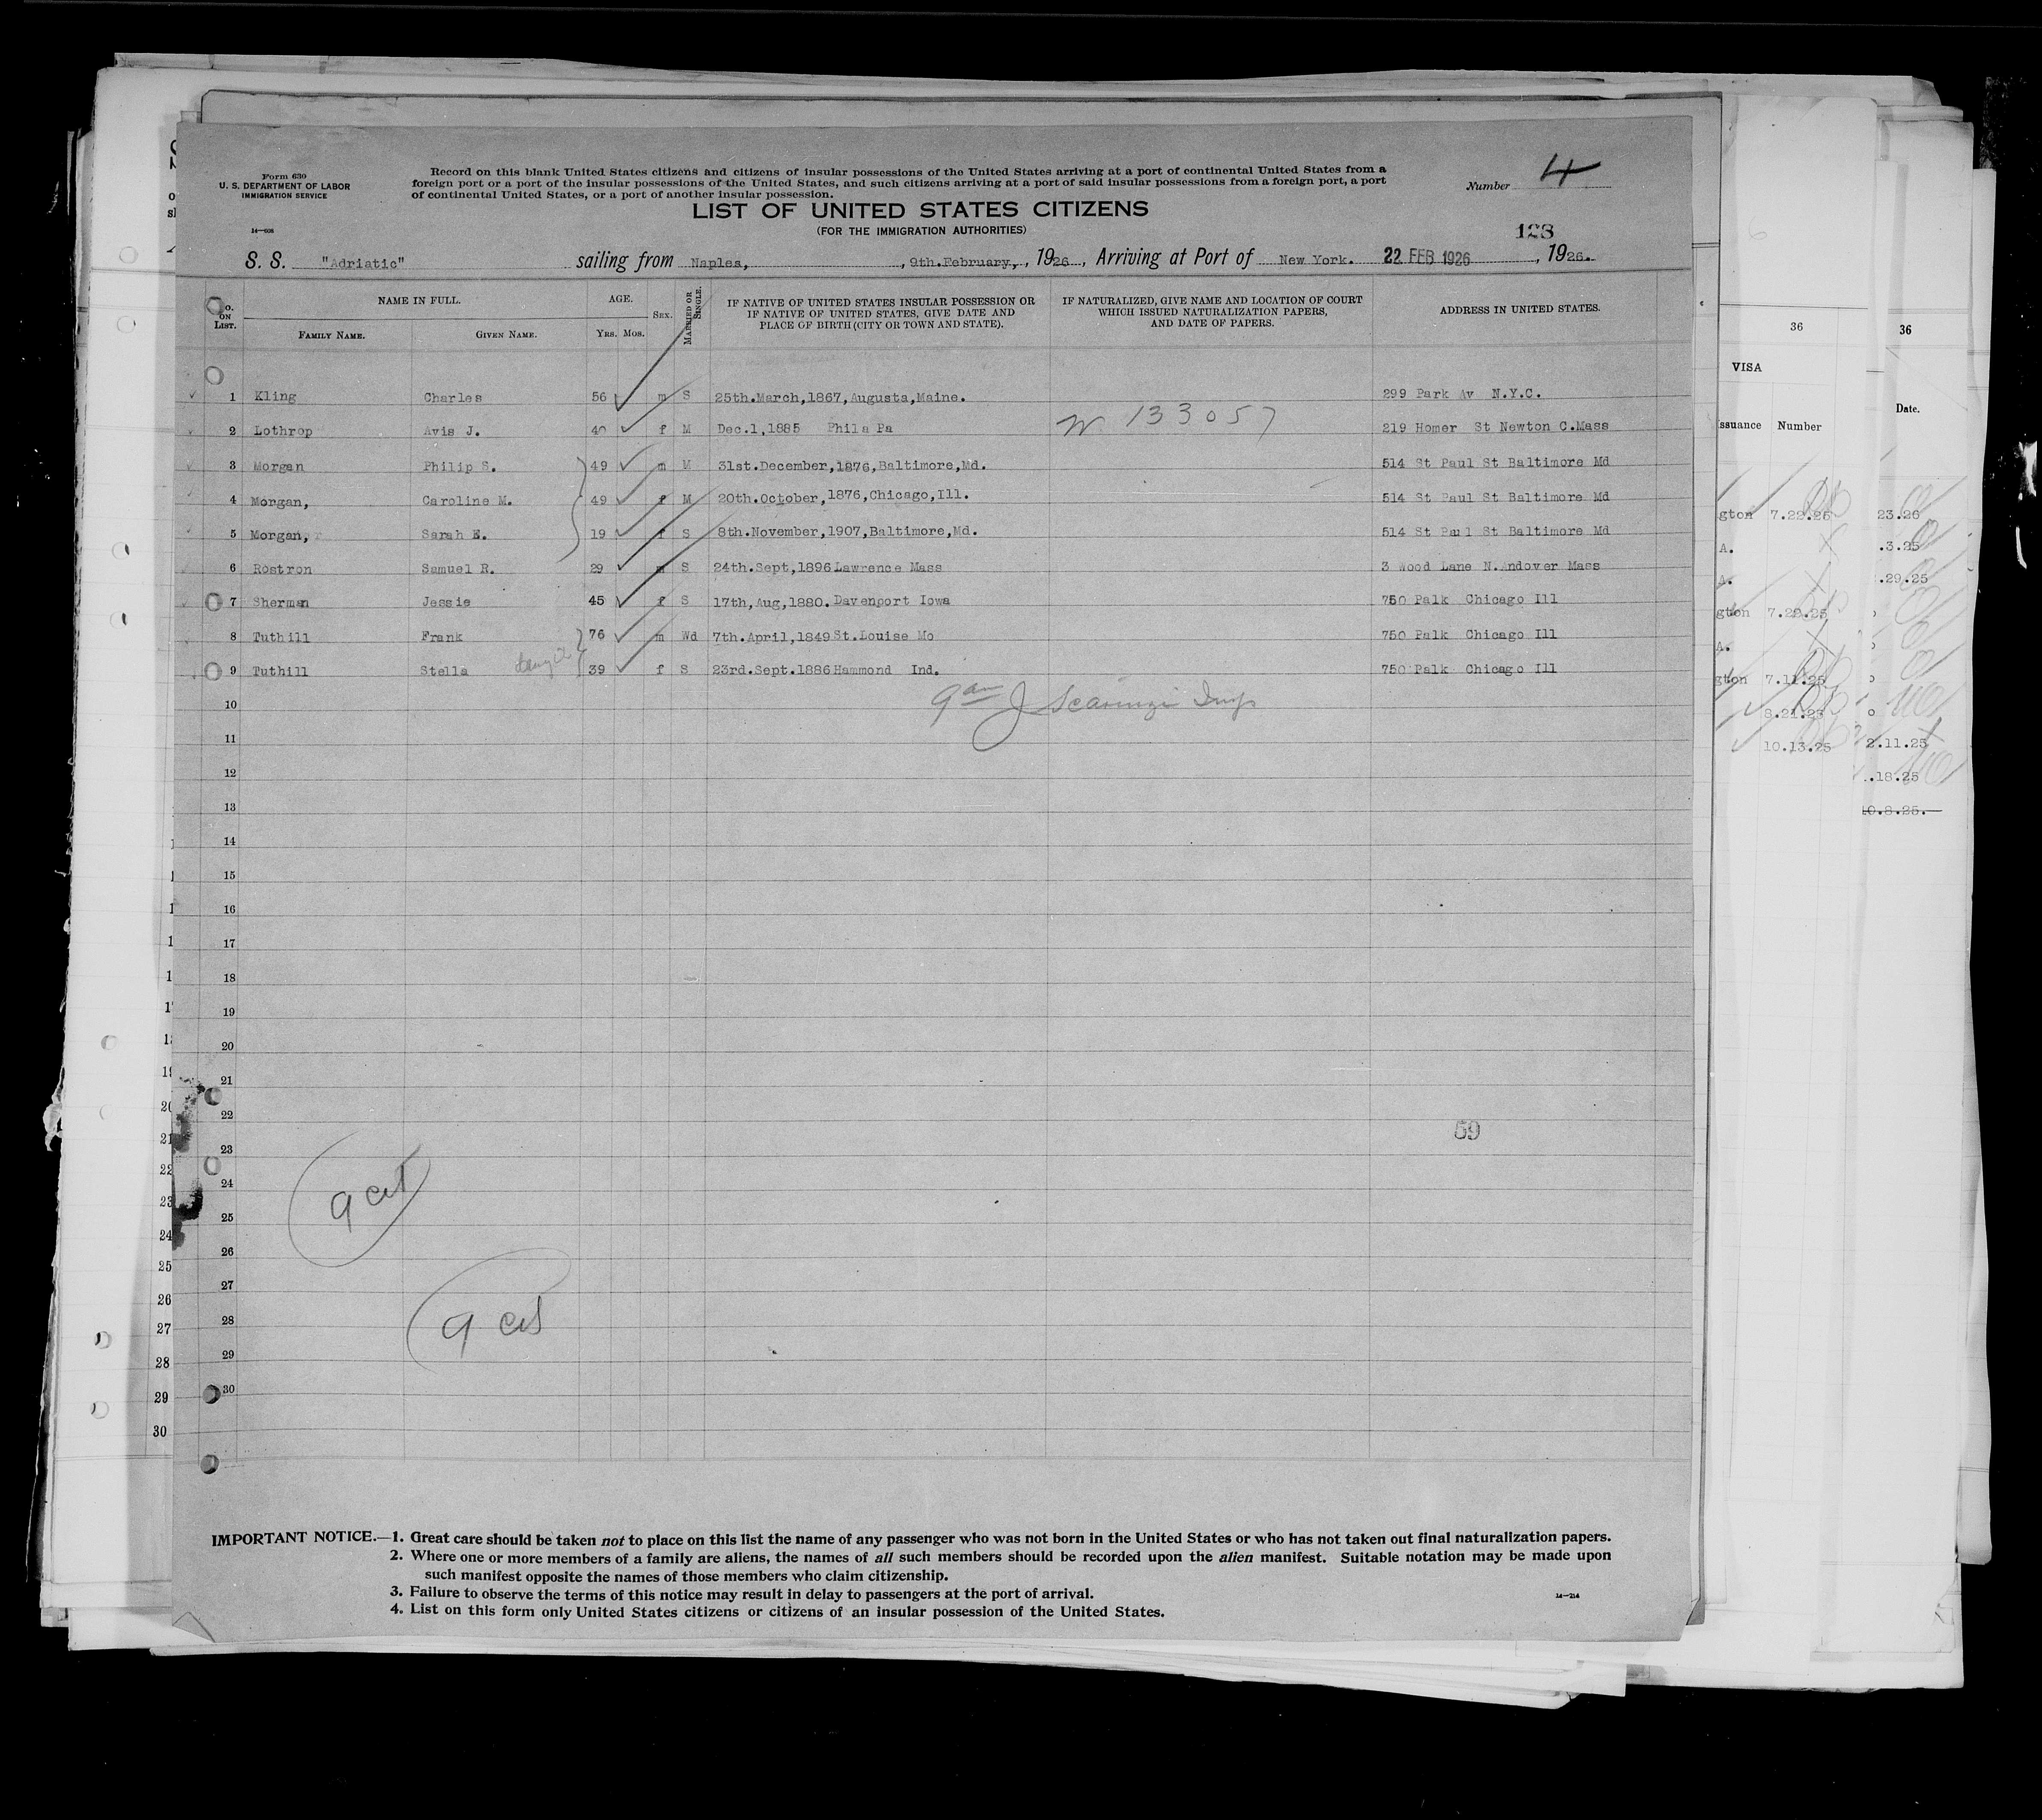 Form 630
U. S. DEPARTMENT OF LABOR
IMMIGRATION SERVICE
14—608
Record on this blank United States citizens and citizens of insular possessions of the United States arriving at a port of continental United States from a
foreign port or a port of the insular possessions of the United States, and such citizens arriving at a port of said insular possessions from a foreign port, a port
of continental United States, or a port of another insular possession.
Number 4
LIST OF UNITED STATES CITIZENS
(FOR THE IMMIGRATION AUTHORITIES)
128
S. S. "Adriatic" sailing from Naples, , 9th.February, , 1926 , Arriving at Port of New York. 22 FEB 1926 , 1926.
No. ON LIST. NAME IN FULL. FAMILY NAME. GIVEN NAME. AGE. YRS. MOS. SEX. MARRIED OR SINGLE. IF NATIVE OF UNITED STATES INSULAR POSSESSION OR IF NATIVE OF UNITED STATES, GIVE DATE AND PLACE OF BIRTH (CITY OR TOWN AND STATE). IF NATURALIZED, GIVE NAME AND LOCATION OF COURT WHICH ISSUED NATURALIZATION PAPERS, AND DATE OF PAPERS. ADDRESS IN UNITED STATES.
1 Kling Charles 56 m S 25th.March,1867,Augusta,Maine. 299 Park Av N.Y.C.
2 Lothrop Avis J. 40 f M Dec.1,1885 Phila Pa W 133057 219 Homer St Newton C.Mass
3 Morgan Philip S. 49 m M 31st.December,1876,Baltimore,Md. 514 St Paul St Baltimore Md
4 Morgan, Caroline M. 49 f M 20th.October,1876,Chicago,Ill. 514 St Paul St Baltimore Md
5 Morgan, Sarah E. 19 f S 8th.November,1907,Baltimore,Md. 514 St Paul St Baltimore Md
6 Rostron Samuel R. 29 m S 24th.Sept,1896 Lawrence Mass 3 Wood Lane N.Andover Mass
7 Sherman Jessie 45 f S 17th,Aug,1880. Davenport Iowa 750 Palk Chicago Ill
8 Tuthill Frank 76 m Wd 7th.April,1849 St.Louise Mo 750 Palk Chicago Ill
9 Tuthill Stella 39 f S 23rd.Sept.1886 Hammond Ind. 750 Palk Chicago Ill
10
11
12
13
14
15
16
17
18
19
20
21
22
59
23
24
9 cit
25
26
27
28
9 cit
29
30
IMPORTANT NOTICE.—1. Great care should be taken not to place on this list the name of any passenger who was not born in the United States or who has not taken out final naturalization papers.
2. Where one or more members of a family are aliens, the names of all such members should be recorded upon the alien manifest. Suitable notation may be made upon
such manifest opposite the names of those members who claim citizenship.
3. Failure to observe the terms of this notice may result in delay to passengers at the port of arrival.
4. List on this form only United States citizens or citizens of an insular possession of the United States.
14—214
36
VISA
Issuance Number
gton 7.22.25
A.
A.
gton 7.22.25
A.
gton 7.11.25
8.21.25
10.13.25
36
Date.
23.26
.3.25
.29.25
2.11.25
.18.25
10.8.25.
20
21
22
23
24
25
26
27
28
29
30